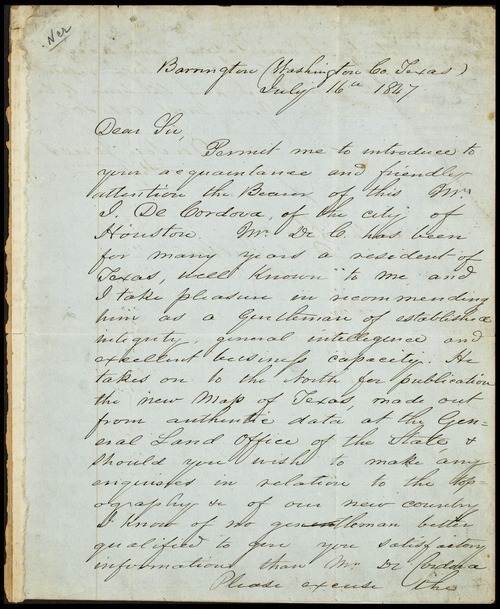 Ner
Barrington (Washington Co. Texas)
July 16th 1847
Dear Sir,
Permit me to introduce to
your acquaintance and friendly
attention the Bearer of this Mr.
J. De Cordova, of the city of
Houston Mr. De C. has been
for many years a resident of
Texas, well known to me and
I take pleasure in recommending
him as a Gentleman of established
integrity, general intelligence and
excellent business capacity. He
takes on to the North for publication
the new Map of Texas, made out
from authentic data at the Gen-
eral Land Office of the State, &
should you wish to make any
enquiries in relation to the top-
ography &c of our new country
I know of no gentleman better
qualified to give you satisfactory
information than Mr. De Cordova
Please excuse the